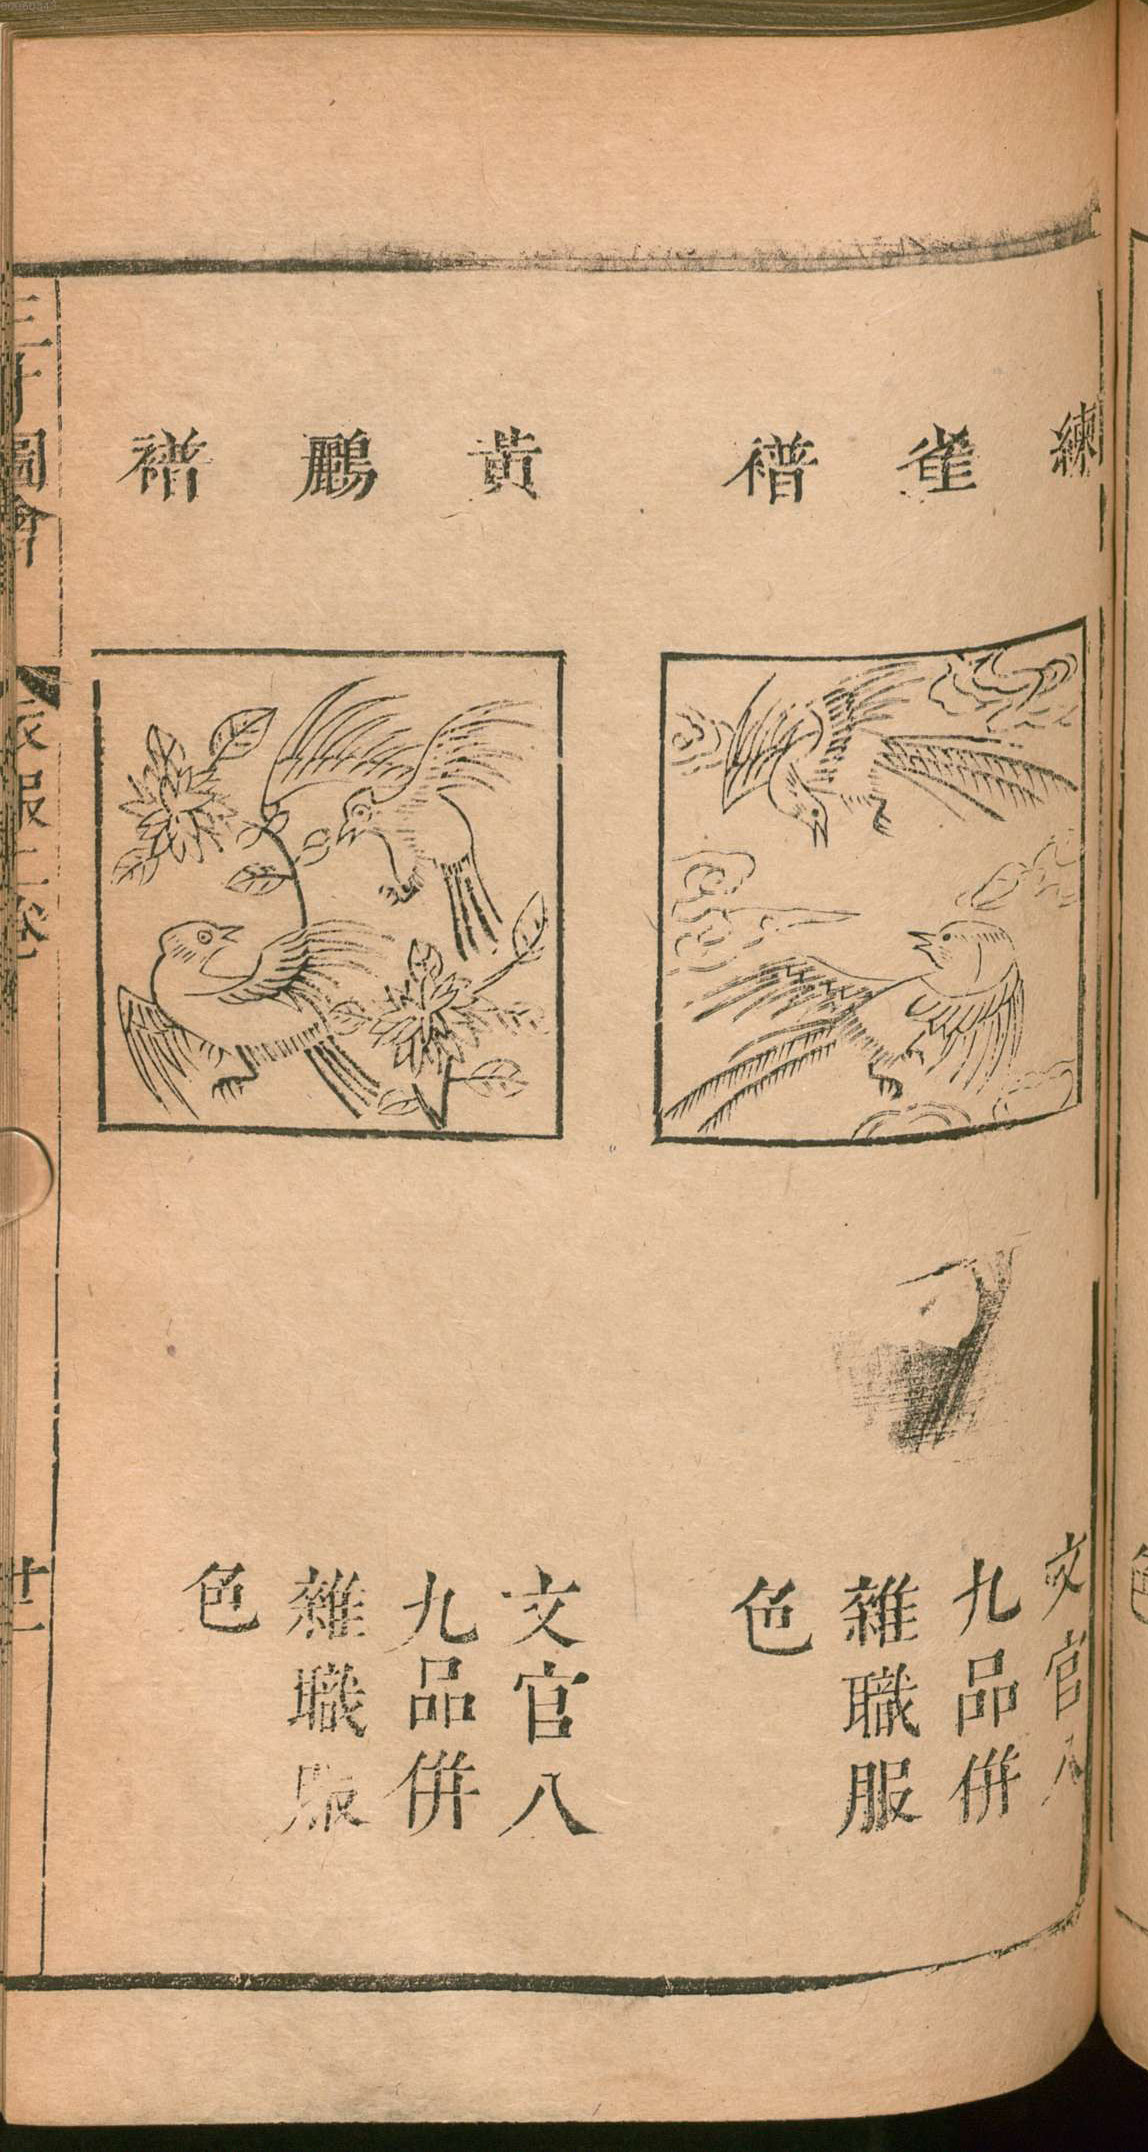 練雀襂
文官八
九品併
雜職服
色
黄鸝襂
文官八
九品併
雜職服
色
三才圖會
衣服二卷
廿二
00060343